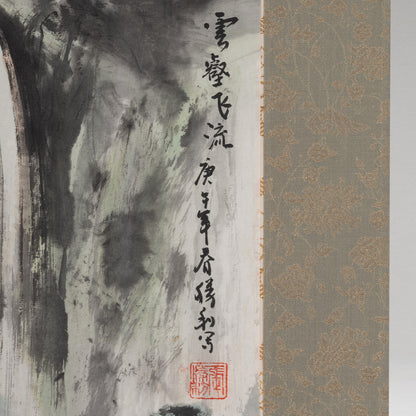 雲壑飞流庚午年春勝利写